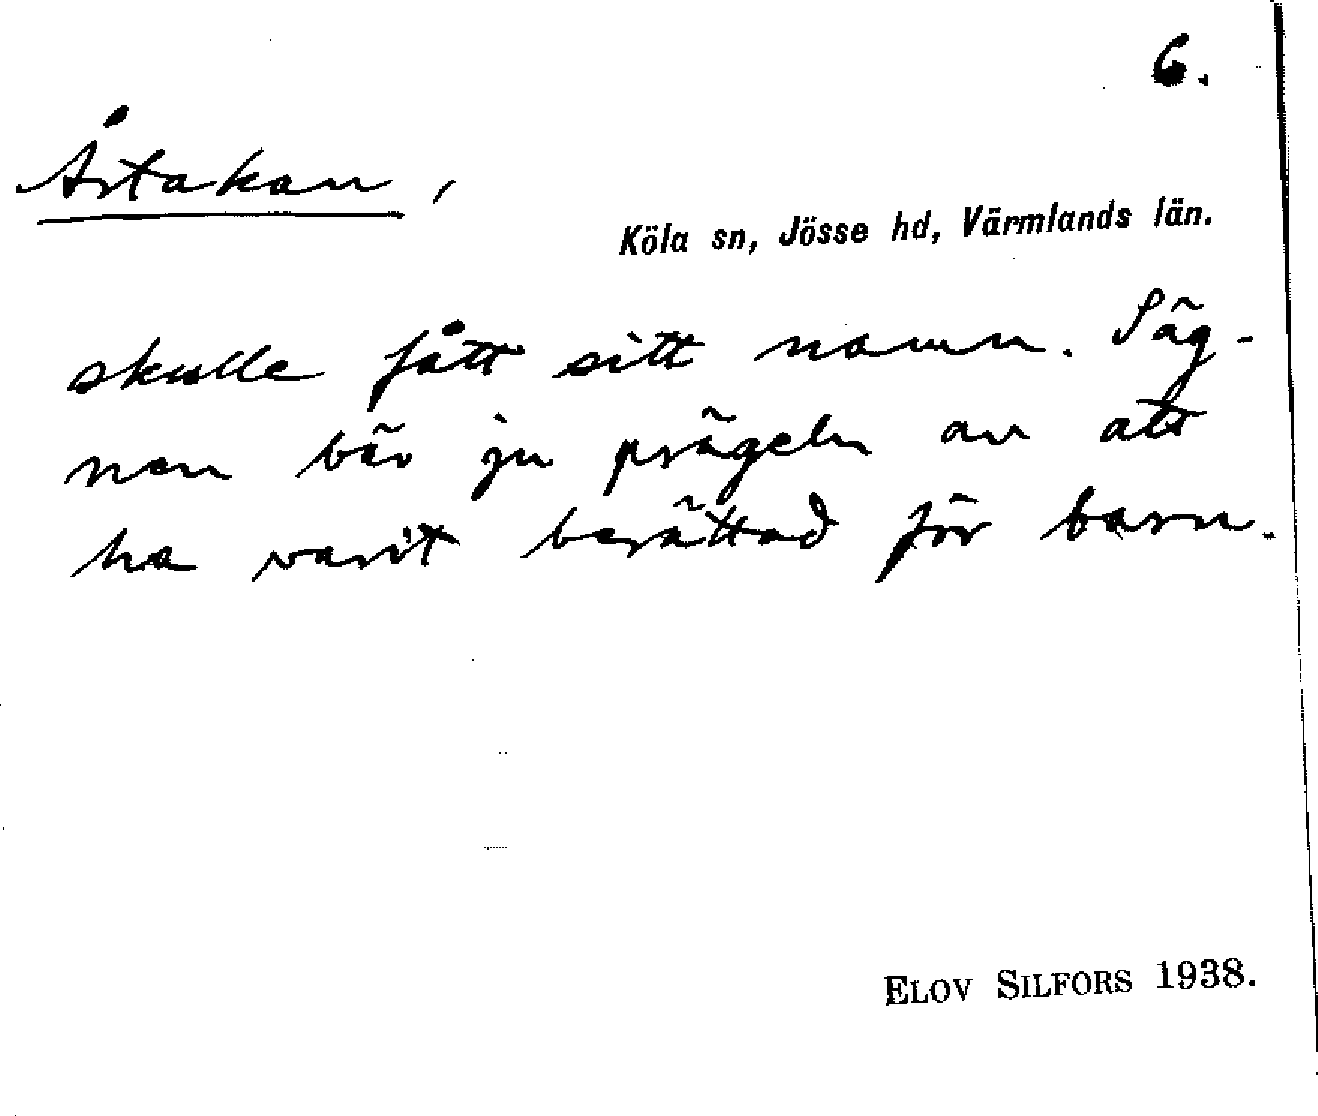 6.
Årtakan,
Köla sn, Jösse hd, Värmlands län.
skulle fått sitt namn. Säg-
nen bär ju prägeln av att
ha varit berättad för barn.
ELOV SILFORS 1938.